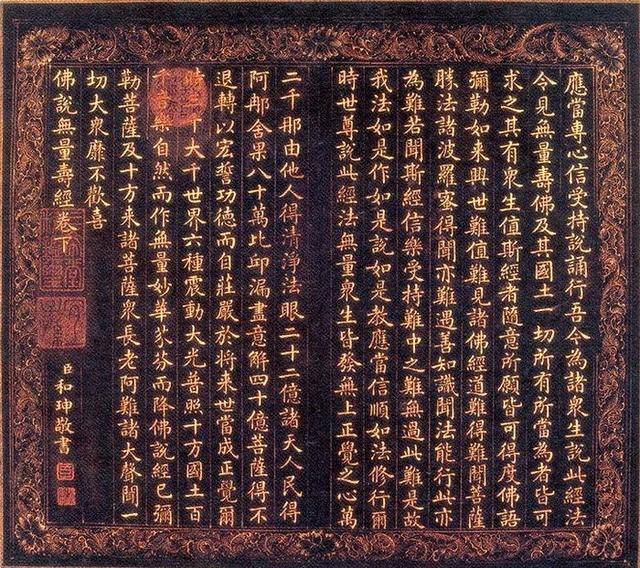 應當專心信受持說誦行吾今為諸衆生說此經法
今見無量壽佛及其國土一切所有所當為者皆可
求之其有衆生值斯經者隨意所願皆可得度佛語
彌勒如來興世難值難見諸佛經道難得難聞菩薩
勝法諸波羅密得聞亦難遇善知識聞法能行此亦
為難若聞斯經信樂受持難中之難無過此難是故
我法如是作如是說如是教應當信順如法修行爾
時世尊說此經法無量衆生皆發無上正覺之心萬
二千那由他人得清淨法眼二十二億諸天人民得
阿那舍果八十萬比邱漏盡意解四十億菩薩得不
退轉以宏誓功德而自莊嚴於將來世當成正覺爾
時三千大千世界六種震動大光普照十方國土百
千音樂自然而作無量妙華芬芬而降佛說經已彌
勒菩薩及十方來諸菩薩衆長老阿難諸大聲聞一
切大衆靡不歡喜
佛說無量壽經卷下
臣和珅敬書